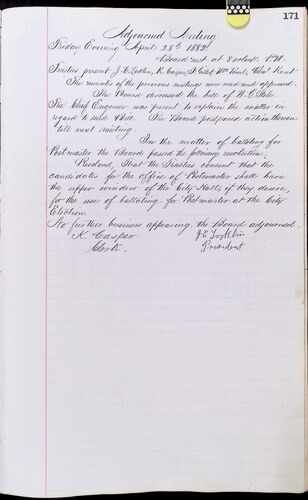 171
Adjourned Meeting
Friday Evening April 28th 1882
Board met at 8 oclock P.M.
Trustees present J. E. K. Casper, Wm Chas. Kent
The minutes of the previous meeting were read and approved.
The Board discussed the bill of W. L.
The Chief Engineer was present to explain the matter in
regard to said bill. The Board postponed action thereon
till next meeting.
In the matter of balloting for
Postmaster the Board passed the following resolution,
Resolved, That the Trustees consent that the
candidates for the office of Postmaster shall have
the upper window of the City Hall, if they desire,
for the use of balloting for Postmaster at the City
Election
No further business appearing, the Board adjourned.
K. Casper
Clerk
J. E.
President